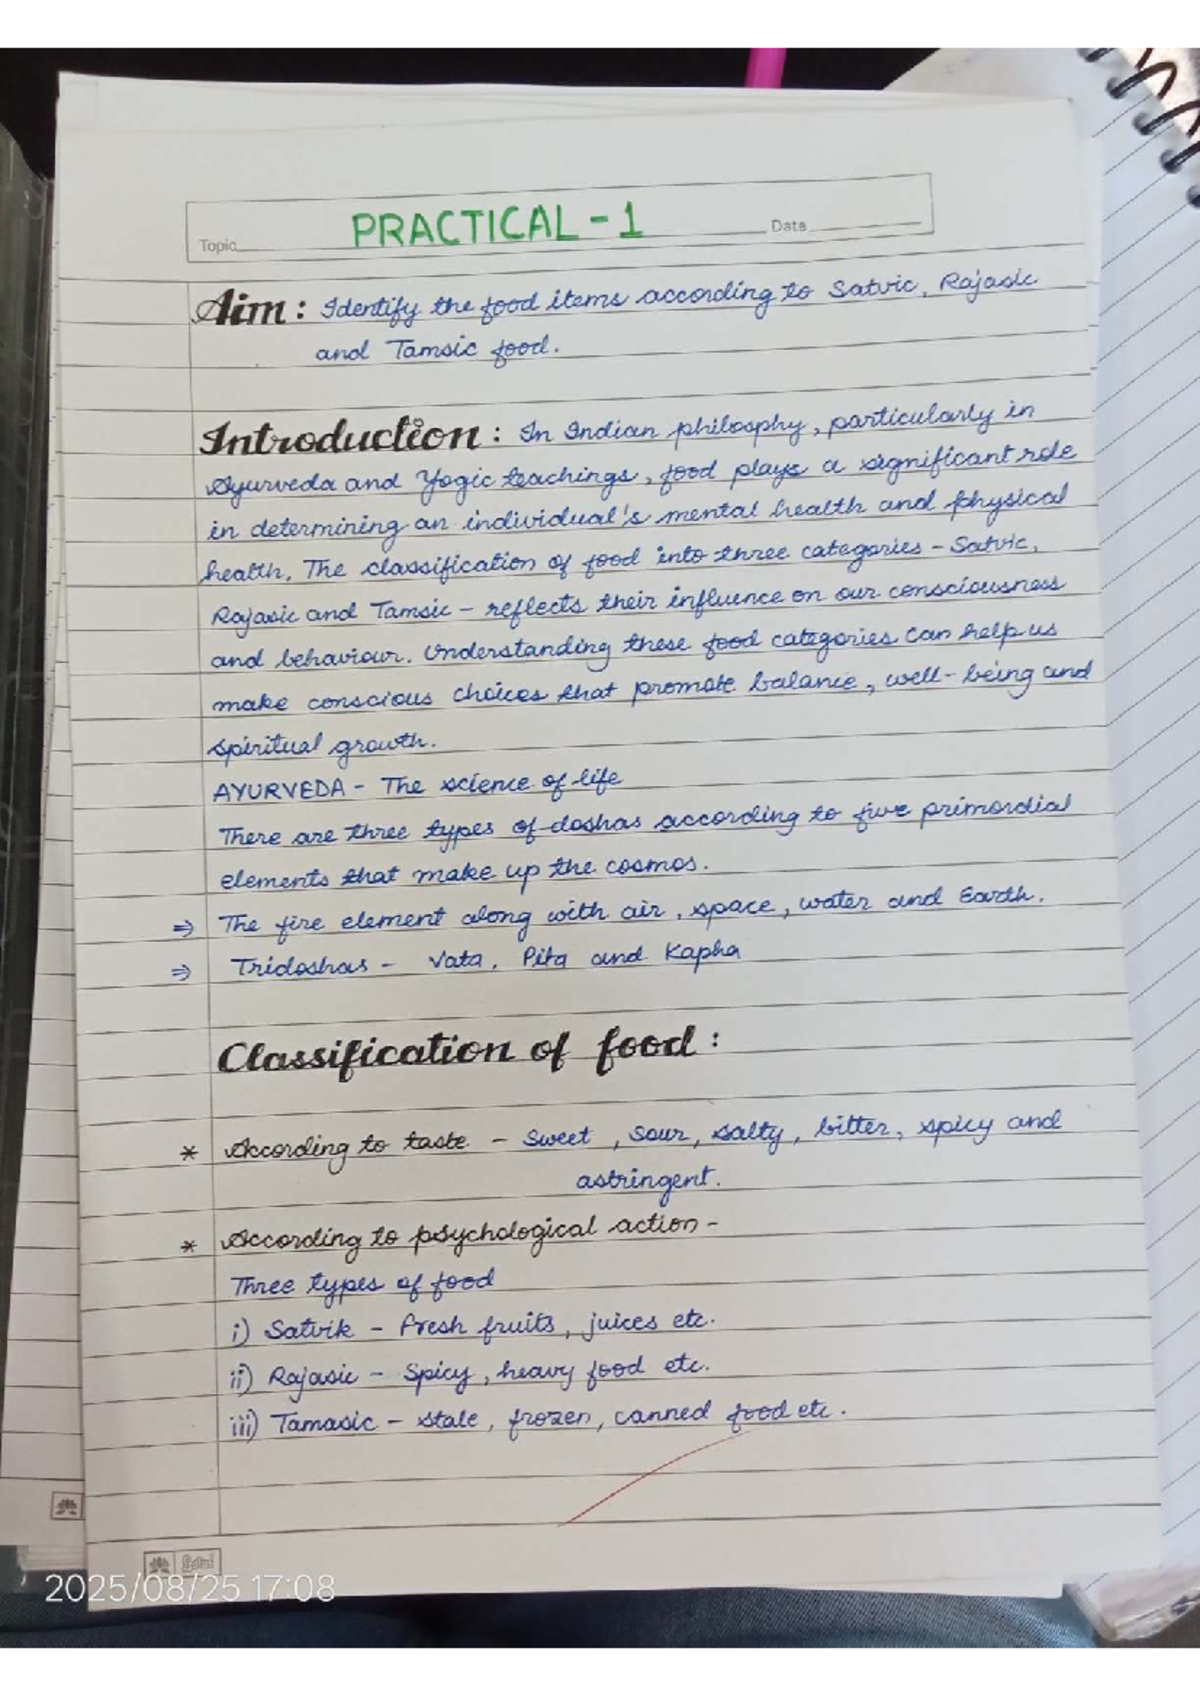 PRACTICAL - 1
Topic
Date
Aim : Identify the food items according to Satvic, Rajasic
and Tamsic food.
Introduction : In Indian philosphy, particularly in
Ayurveda and Yogic teachings, food plays a significant role
in determining an individual's mental health and physical
health. The classification of food into three categories - Satvic,
Rajasic and Tamsic - reflects their influence on our consciousness
and behaviour. Understanding these food categories can help us
make conscious choices that promote balance, well-being and
spiritual growth.
AYURVEDA - The science of life
There are three types of doshas according to five primordial
elements that make up the cosmos.
⇒ The fire element along with air, space, water and Earth.
⇒ Tridoshas - Vata, Pita and Kapha
Classification of food :
* According to taste - Sweet, Sour, salty, bitter, spicy and
astringent.
* According to psychological action -
Three types of food
i) Satvik - fresh fruits, juices etc.
ii) Rajasic - Spicy, heavy food etc.
iii) Tamasic - stale, frozen, canned food etc.
2025/08/25 17:08